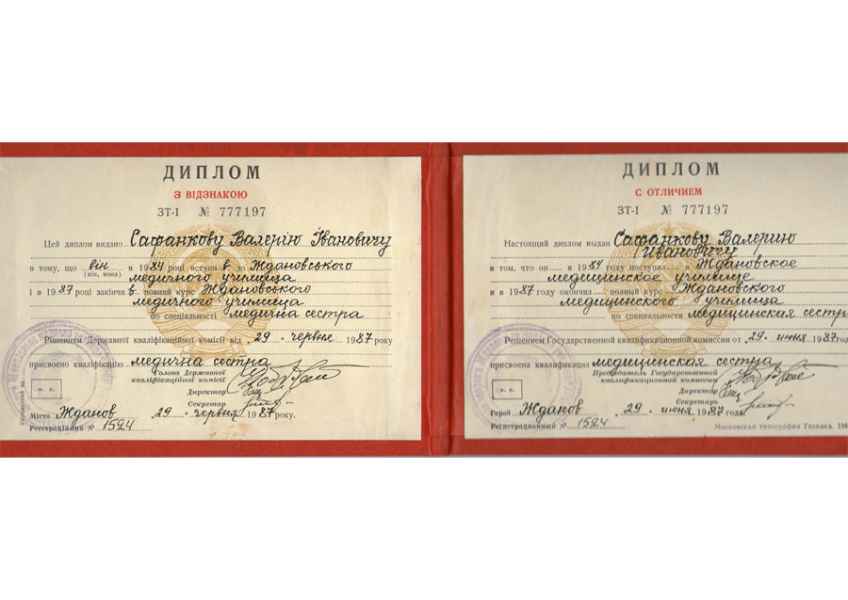 ДИПЛОМ
З ВІДЗНАКОЮ
ЗТ-I № 777197
Цей диплом видано Сафанкову Валерію Івановичу
в тому, що він в 1984 році вступи в до Ждановського
(він, вона)
медичного училища
і в 1987 році закінчи в повний курс Ждановського
медичного училища
по спеціальності медична сестра
Рішенням Державної кваліфікаційної комісії від 29 червня 1987 року
присвоєно кваліфікацію медична сестра
Голова Державної
кваліфікаційної комісії
Директор
Секретар
Місто Жданов 29 червня 1987 року.
Реєстраційний № 1524
ДИПЛОМ
С ОТЛИЧИЕМ
ЗТ-I № 777197
Настоящий диплом выдан Сафанкову Валерию
Ивановичу
в том, что он в 1984 году поступил в Ждановское
медицинское училище
и в 1987 году окончил полный курс Ждановского
медицинского училища
по специальности медицинская сестр
Решением Государственной квалификационной комиссии от 29 июня 1987
присвоена квалификация медицинская сестра
Председатель Государственной
квалификационной комиссии
Директор
Секретарь
Город Жданов 29 июня 1987 года.
Регистрационный № 1524
Московская типография Гознака.